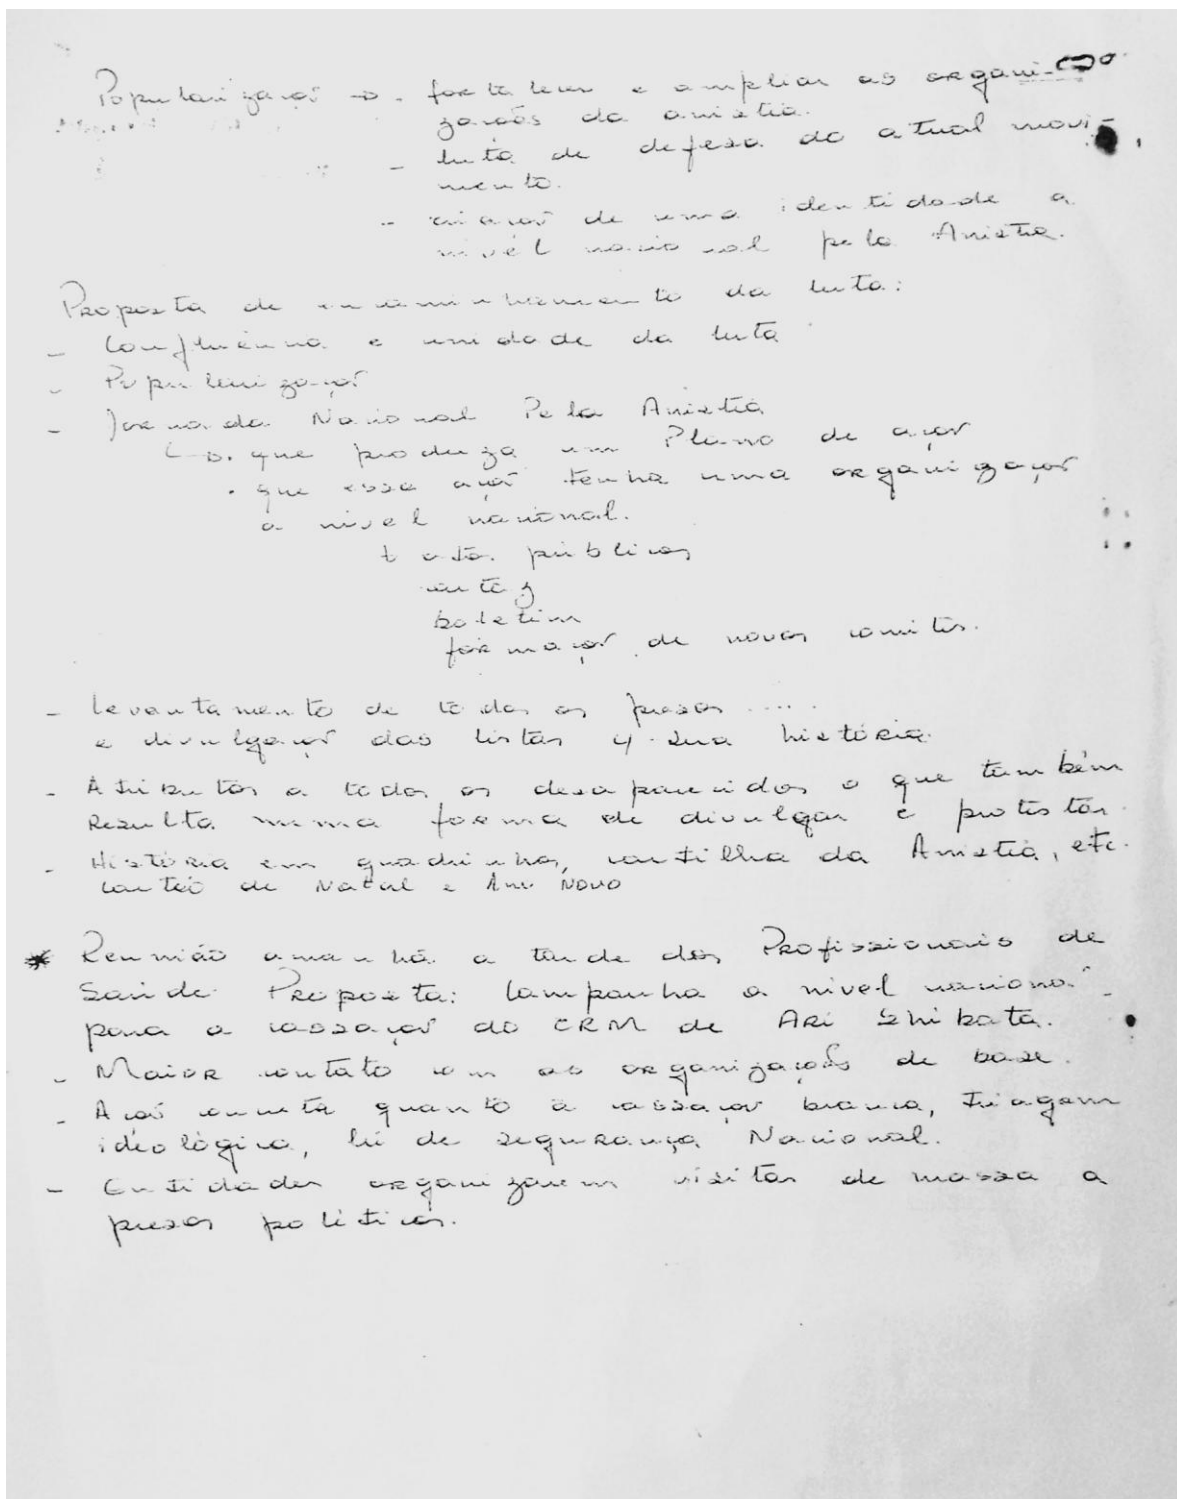 Popularização → . fortalecer e ampliar as organi-
zações da anistia.
- luta de defesa do atual movi-
mento.
- criação de uma identidade a
nível nacional pela Anistia.
Proposta de encaminhamento da luta:
- Confluência e unidade da luta
- Popularização
- Jornada Nacional Pela Anistia
↳ . que produza um Plano de ação
. que essa ação tenha uma organização
a nível nacional.
atos públicos
cartaz
boletim
formação de novos comitês.
- Levantamento de todos os presos .....
e divulgação das listas c/ sua história.
- Atributos a todos os desaparecidos o que também
resulta numa forma de divulgar e protestar.
- História em quadrinhos, cartilha da Anistia, etc.
cartão de Natal e Ano Novo
* Reunião amanhã a tarde dos Profissionais de
Saúde Proposta: Campanha a nível nacional
para a cassação do CRM de Ari Shibata.
- Maior contato com as organizações de base.
- Ação concreta quanto à cassação branca, triagem
ideológica, lei de segurança Nacional.
- Entidades organizarem visitas de massa a
presos políticos.